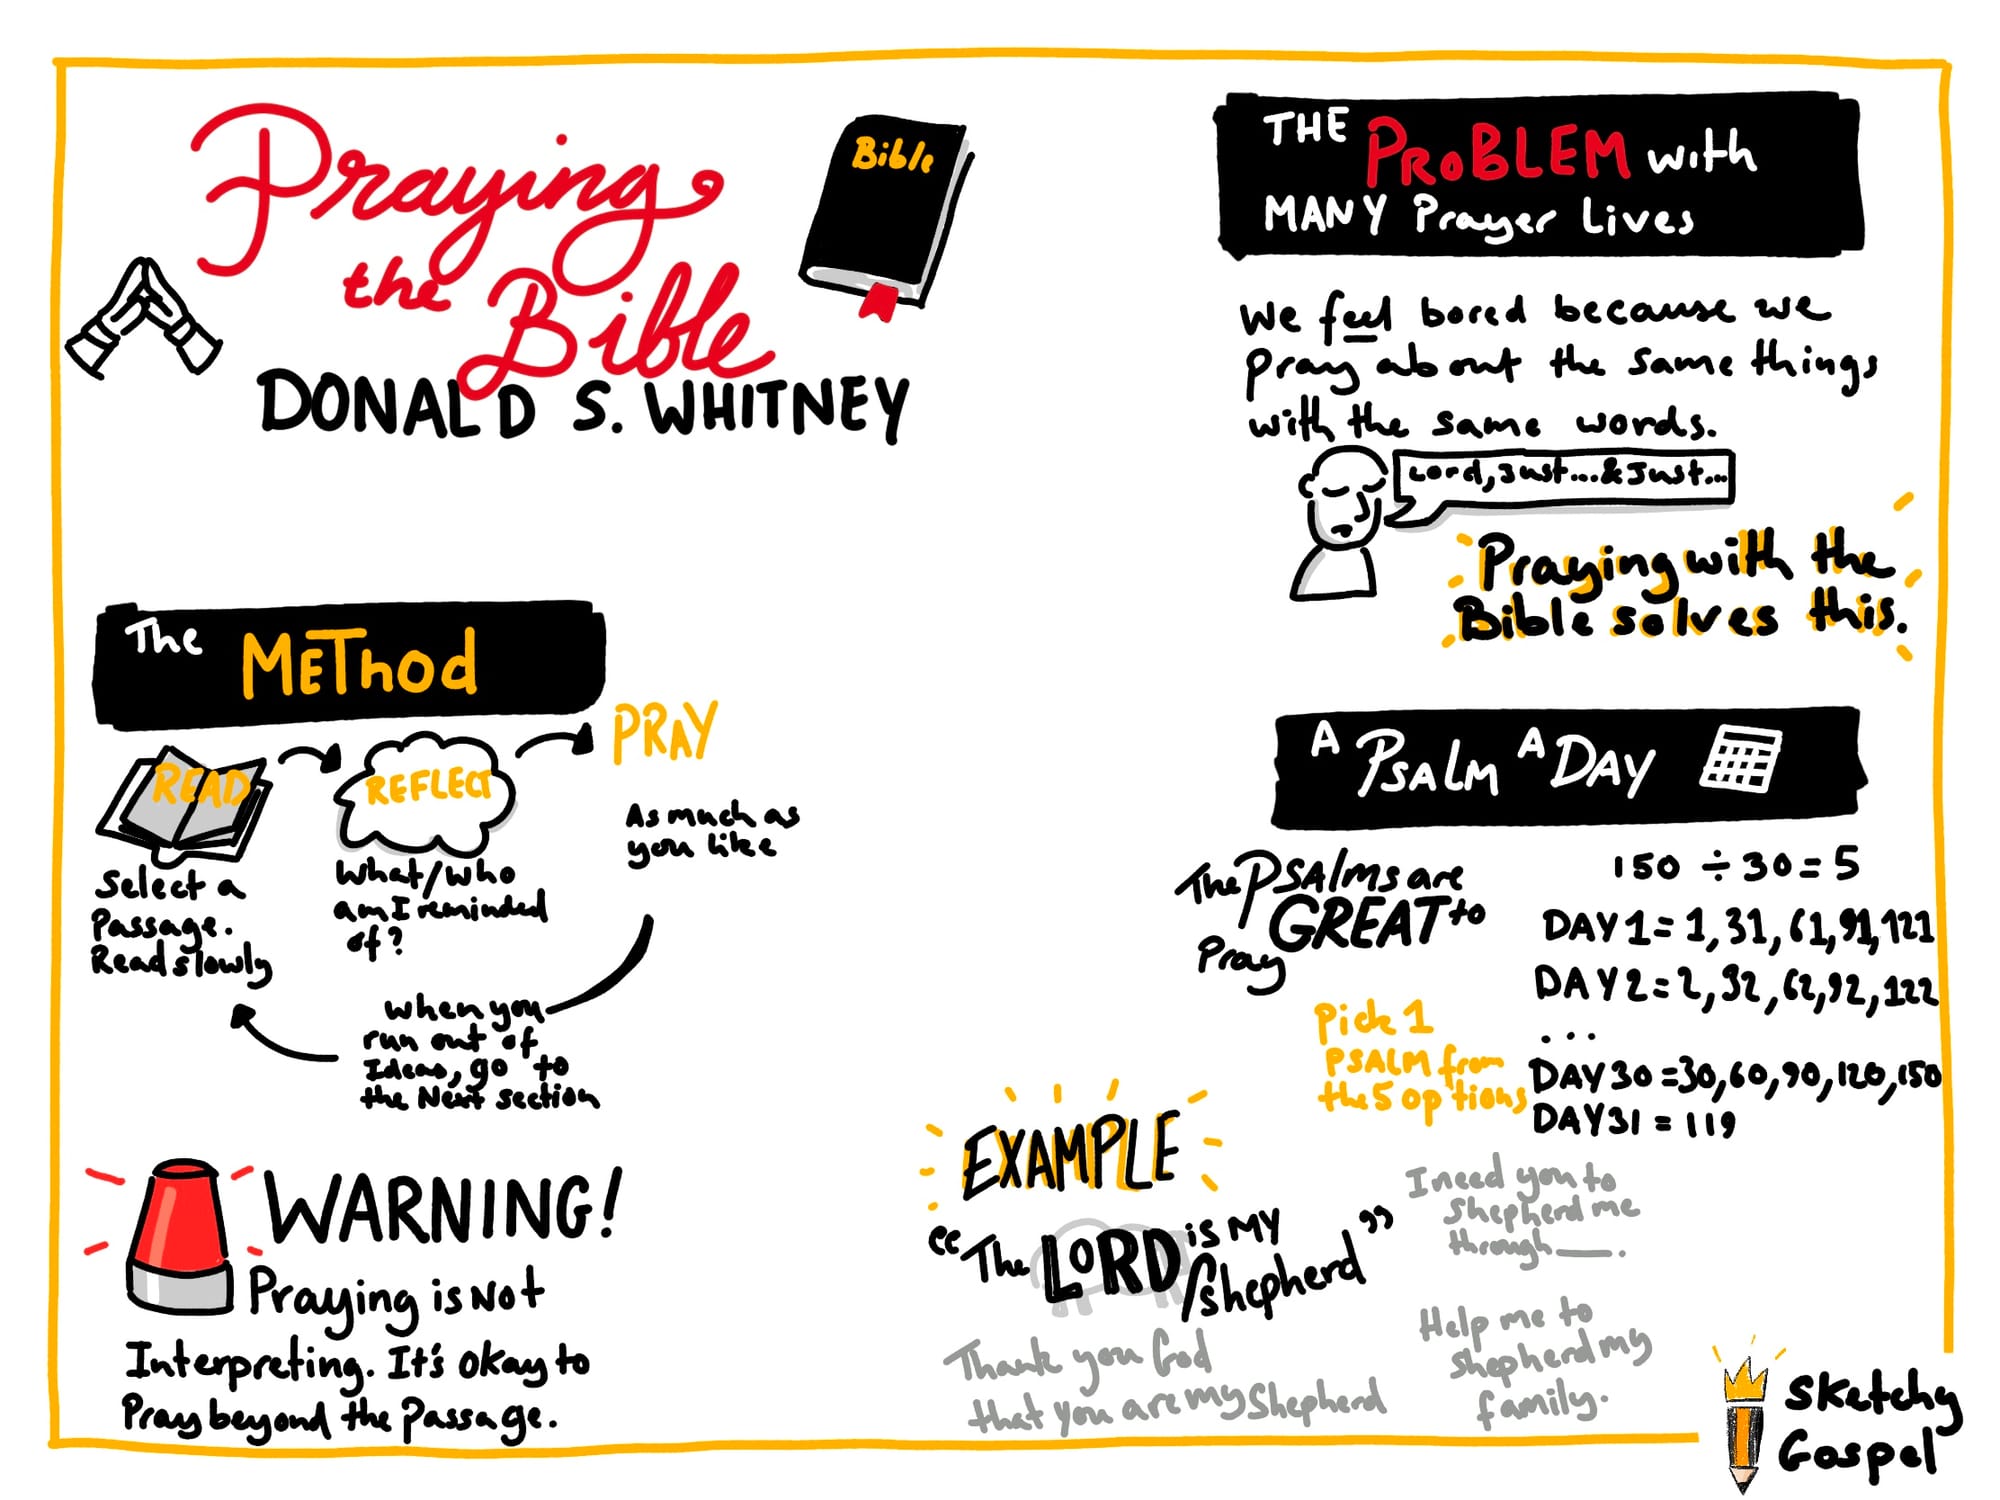 Praying
the Bible
DONALD S. WHITNEY
Bible
THE PROBLEM with
MANY Prayer Lives
We feel bored because we
pray about the same things
with the same words.
Lord, Just....& Just...
Praying with the
Bible solves this.
The METhod
READ
Select a
Passage.
Read slowly
REFLECT
What/who
am I reminded
of?
PRAY
As much as
you like
when you
run out of
Ideas, go to
the Next section
WARNING!
Praying is Not
Interpreting. It's okay to
Pray beyond the Passage.
A PSALM A DAY
The PSAlms are
GREAT to
Pray
150 ÷ 30 = 5
DAY 1 = 1, 31, 61, 91, 121
DAY 2 = 2, 32, 62, 92, 122
...
DAY 30 = 30, 60, 90, 120, 150
DAY 31 = 119
Pick 1
PSALM from
the 5 options
EXAMPLE
"The LORD is MY
Shepherd"
Thank you God
that you are my Shepherd
I need you to
Shepherd me
through ___.
Help me to
shepherd my
family.
Sketchy
Gospel